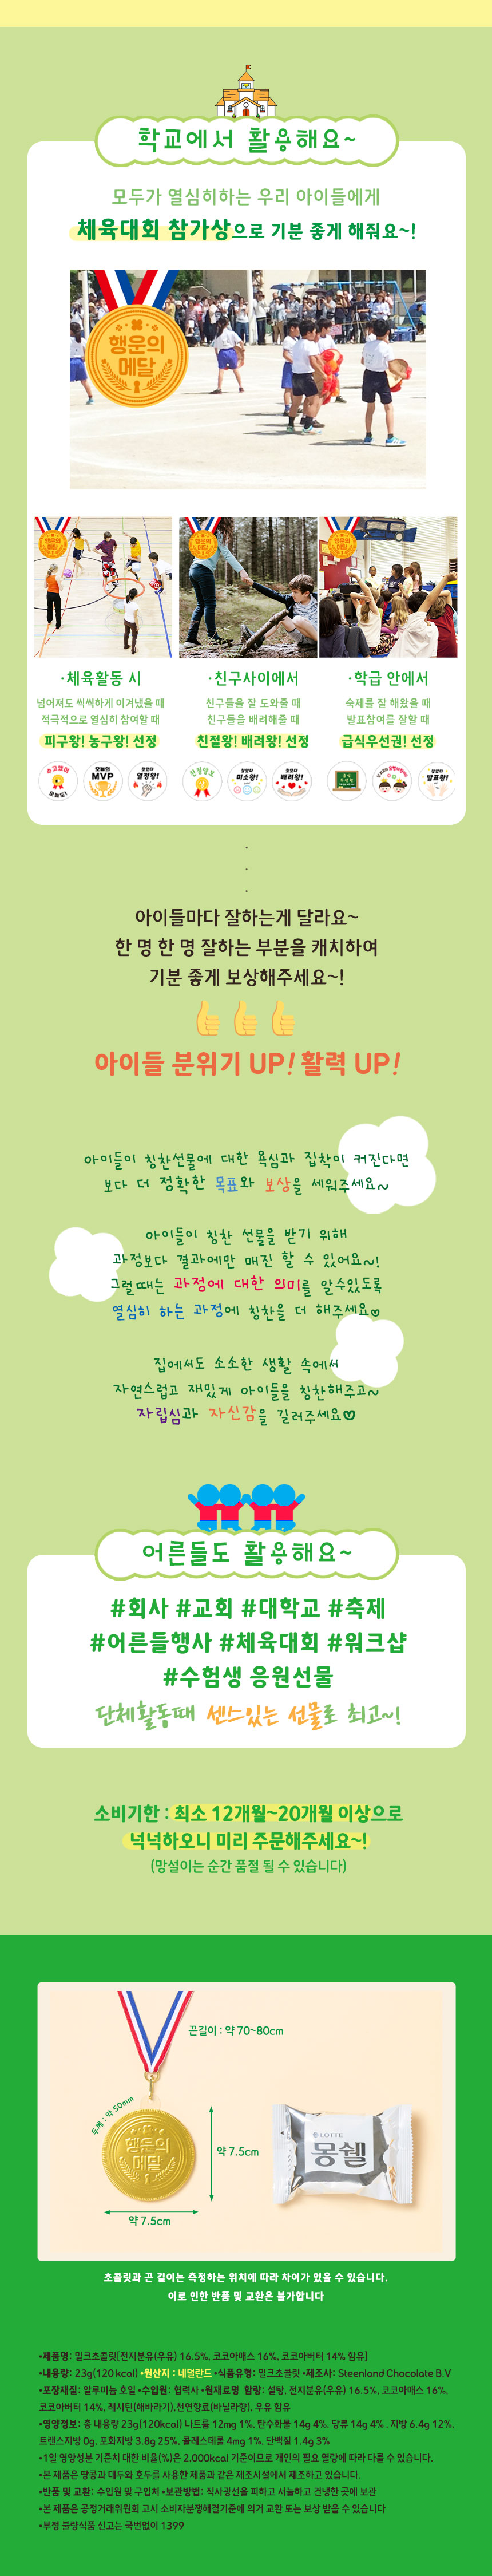 학교에서 활용해요~
모두가 열심히하는 우리 아이들에게
체육대회 참가상으로 기분 좋게 해줘요~!
행운의
메달
행운의
메달
행운의
메달
행운의
메달
·체육활동 시
넘어져도 씩씩하게 이겨냈을 때
적극적으로 열심히 참여할 때
피구왕! 농구왕! 선정
·친구사이에서
친구들을 잘 도와줄 때
친구들을 배려해줄 때
친절왕! 배려왕! 선정
·학급 안에서
숙제를 잘 해왔을 때
발표참여를 잘할 때
급식우선권! 선정
수고했어
오늘도!
오늘의
MVP
잘했다
열정왕!
친절상
잘했다
미소왕!
잘했다
배려왕!
잘했다
발표왕!
.
.
.
아이들마다 잘하는게 달라요~
한 명 한 명 잘하는 부분을 캐치하여
기분 좋게 보상해주세요~!
아이들 분위기 UP! 활력 UP!
아이들이 칭찬선물에 대한 욕심과 집착이 커진다면
보다 더 정확한 목표와 보상을 세워주세요~
아이들이 칭찬 선물을 받기 위해
과정보다 결과에만 매진 할 수 있어요~!
그럴때는 과정에 대한 의미를 알수있도록
열심히 하는 과정에 칭찬을 더 해주세요♡
집에서도 소소한 생활 속에서
자연스럽고 재밌게 아이들을 칭찬해주고~
자립심과 자신감을 길러주세요♡
어른들도 활용해요~
#회사 #교회 #대학교 #축제
#어른들행사 #체육대회 #워크샵
#수험생 응원선물
단체활동때 센스있는 선물로 최고~!
소비기한 : 최소 12개월~20개월 이상으로
넉넉하오니 미리 주문해주세요~!
(망설이는 순간 품절 될 수 있습니다)
끈길이 : 약 70~80cm
두께 : 약 50mm
행운의
메달
약 7.5cm
약 7.5cm
LOTTE
몽쉘
초콜릿과 끈 길이는 측정하는 위치에 따라 차이가 있을 수 있습니다.
이로 인한 반품 및 교환은 불가합니다
•제품명: 밀크초콜릿[전지분유(우유) 16.5%, 코코아매스 16%, 코코아버터 14% 함유]
•내용량: 23g(120 kcal) •원산지 : 네덜란드 •식품유형: 밀크초콜릿 •제조사: Steenland Chocolate B.V
•포장재질: 알루미늄 호일 •수입원: 협력사 •원재료명 함량: 설탕, 전지분유(우유) 16.5%, 코코아매스 16%,
코코아버터 14%, 레시틴(해바라기),천연향료(바닐라향), 우유 함유
•영양정보: 총 내용량 23g(120kcal) 나트륨 12mg 1%, 탄수화물 14g 4%, 당류 14g 4% , 지방 6.4g 12%,
트랜스지방 0g, 포화지방 3.8g 25%, 콜레스테롤 4mg 1%, 단백질 1.4g 3%
•1일 영양성분 기준치 대한 비율(%)은 2,000kcal 기준이므로 개인의 필요 열량에 따라 다를 수 있습니다.
•본 제품은 땅콩과 대두와 호두를 사용한 제품과 같은 제조시설에서 제조하고 있습니다.
•반품 및 교환: 수입원 및 구입처 •보관방법: 직사광선을 피하고 서늘하고 건냉한 곳에 보관
•본 제품은 공정거래위원회 고시 소비자분쟁해결기준에 의거 교환 또는 보상 받을 수 있습니다
•부정 불량식품 신고는 국번없이 1399